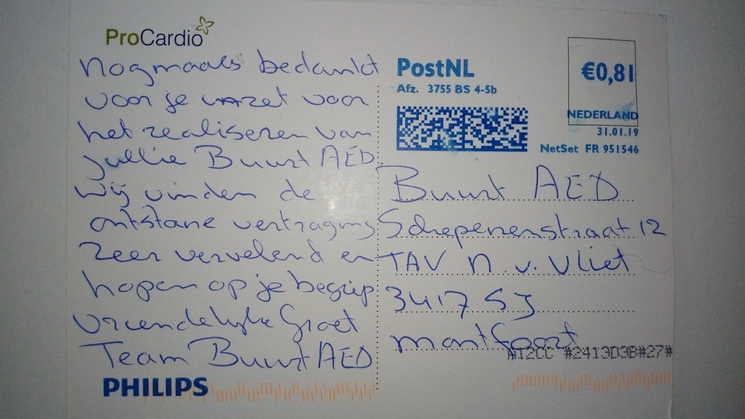 ProCardio
Nogmaals bedankt
voor je inzet voor
het realiseren van
jullie Buurt AED.
Wij vinden de
ontstane vertraging
zeer vervelend en
hopen op je begrip
vriendelijke Groet
Team Buurt AED
PHILIPS
PostNL
Afz. 3755 BS 4-5b
€0,81
NEDERLAND
31.01.19
NetSet FR 951546
Buurt AED
Schepenenstraat 12
TAV N v. Vliet
3417 SJ
montfoort
#12CC #2413D3B#27#